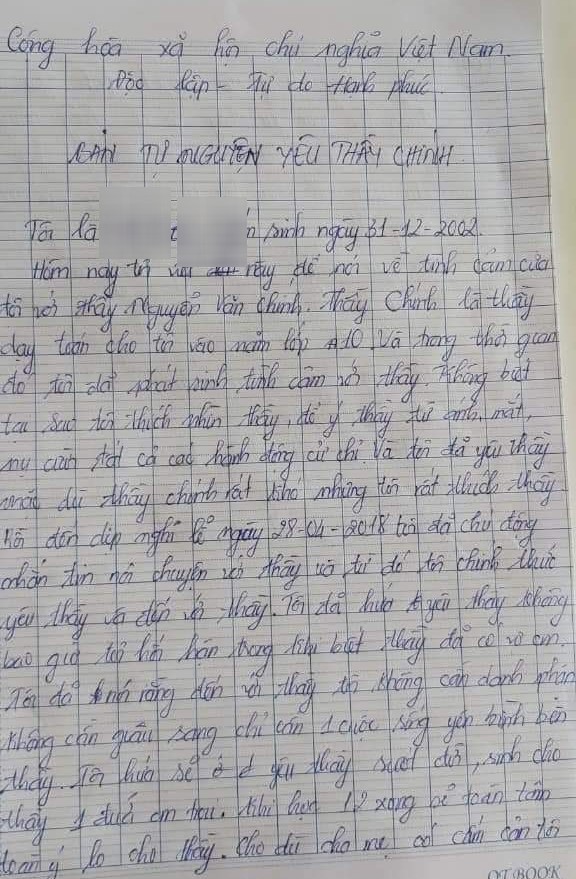 Cộng hòa xã hội chủ nghĩa Việt Nam.
Độc lập - Tự do Hạnh phúc.
BẢN TỰ NGUYỆN YÊU THẦY CHINH.
Tôi là sinh ngày 31-12-2002.
Hôm nay tôi này để nói về tình cảm của
tôi với thầy Nguyễn Văn Chinh. Thầy Chinh là thầy
dạy toán cho tôi vào năm lớp 10. Và trong thời gian
đó tôi đã phát sinh tình cảm với thầy. Không biết
tại sao tôi thích nhìn thầy, để ý thầy từ ánh mắt,
nụ cười tất cả các hành động cử chỉ. Và tôi đã yêu thầy
mặc dù thầy chinh rất khó nhưng tôi rất thích thầy.
đến dịp nghỉ lễ ngày 28-04-2018 tôi đã chủ động
nhắn tin nói chuyện với thầy và từ đó tôi chính thức
yêu thầy và đến với thầy. Tôi đã hứa yêu thầy không
bao giờ tôi hối hận trong khi biết thầy đã có vợ con.
Tôi đã rằng đến với thầy tôi không cần danh phận
không cần giàu sang chỉ cần 1 cuộc sống yên bình bên
thầy. Tôi hứa sẽ ở yêu thầy suốt đời, sinh cho
thầy 1 đứa con trai. Khi học 12 xong sẽ toàn tâm
toàn ý lo cho thầy. Cho dù cha mẹ có cấm cản tôi
OT.BOOK